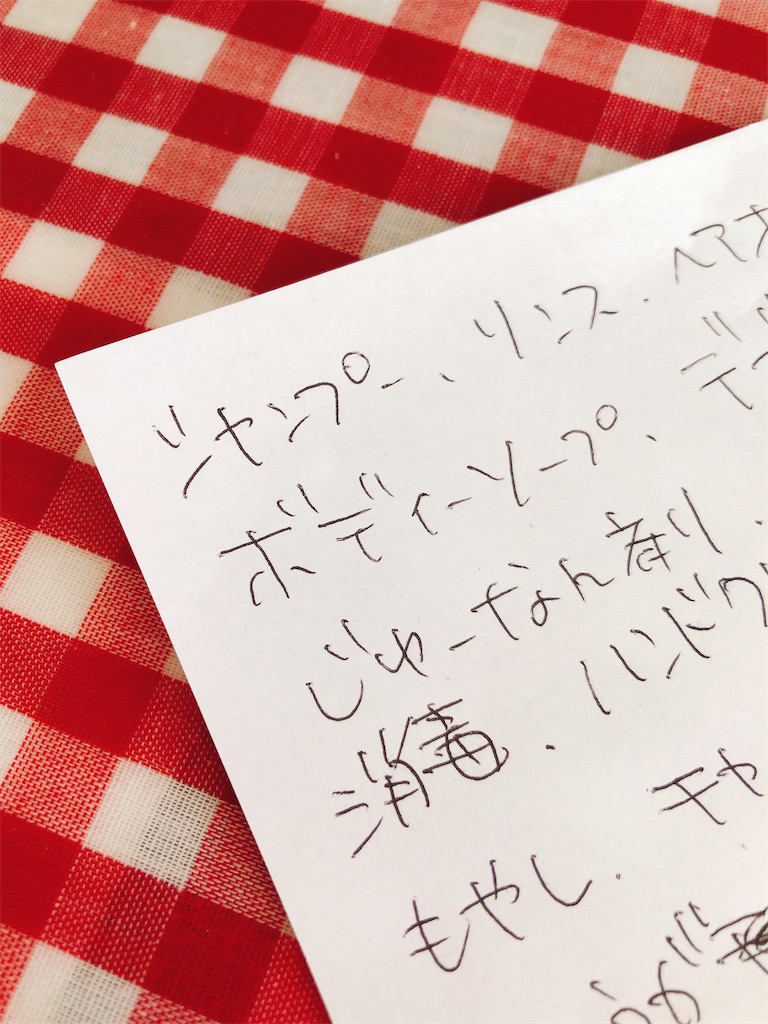 シャンプー、リンス．ヘアオ
ボディーソープ、デ
じゅーなん剤．
消毒．ハンドク
もやし．キャ
が